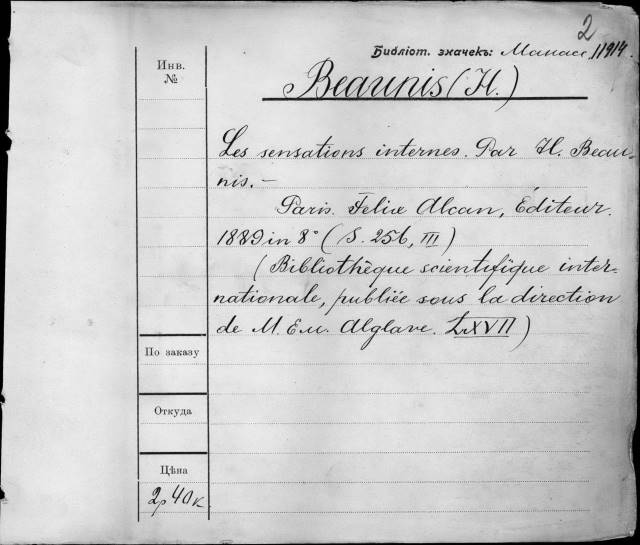 2
Библіот. значекъ: Манас 11914.
Инв.
№
Beaunis (H.)
Les sensations internes. Par H. Beau-
nis. —
Paris. Felix Alcan, Éditeur.
1889 in 8° (S. 256, III)
(Bibliothèque scientifique inter-
nationale, publiée sous la direction
de M. Em. Alglave. LXVII)
По заказу
Откуда
Цѣна
2р 40к